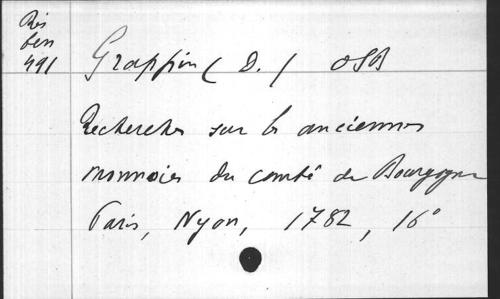 Rés
ben
491
Grappin (D.) OSB
Recherches sur les anciennes
monnoies du comté de Bourgogne
Paris, Nyon, 1782, 16°